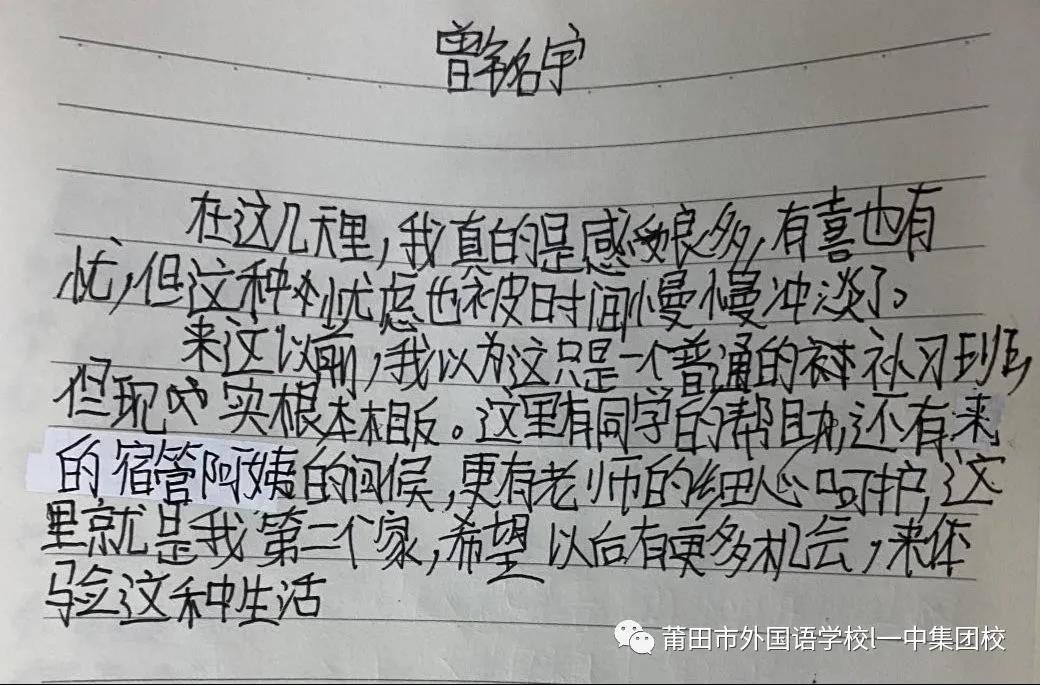 曾铭宇
在这几天里，我真的是感受良多，有喜也有
忧，但这种忧虑也被时间慢慢冲淡了。
来这以前，我以为这只是一个普通的补习班，
但现实根本相反。这里有同学的帮助，还有来
的宿管阿姨的问候，更有老师的细心呵护，这
里就是我第二个家，希望以后有更多机会，来体
验这种生活
莆田市外国语学校|一中集团校